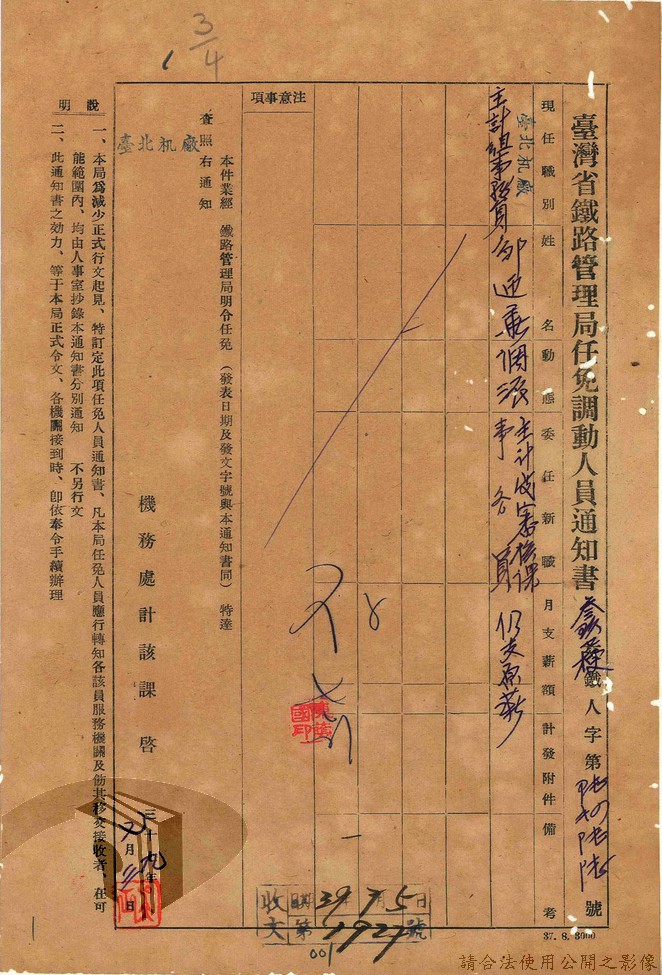 3/4
臺灣省鐵路管理局任免調動人員通知書
鐵人字第 號
現任職別
姓名
動態
委任新職
月支薪額
計發附件
備考
臺北机廠
主計組事務員
調派
主計處審核課
事務員
仍支原薪
注意事項
本件業經 鐵路管理局明令任免 (發表日期及發文字號與本通知書同) 特達
查照右通知
臺北机廠
機務處計該課 啓
三十九年 月 日
說明
一、本局爲減少正式行文起見、特訂定此項任免人員通知書、凡本局任免人員應行轉知各該員服務機關及飭其移交接收者、在可
能範圍內、均由人事室抄錄本通知書分別通知 不另行文
二、此通知書之効力、等于本局正式令文、各機關接到時、卽依奉令手續辦理
收文 39年7月5日
第1927號
001
37. 8. 3000
請合法使用公開之影像